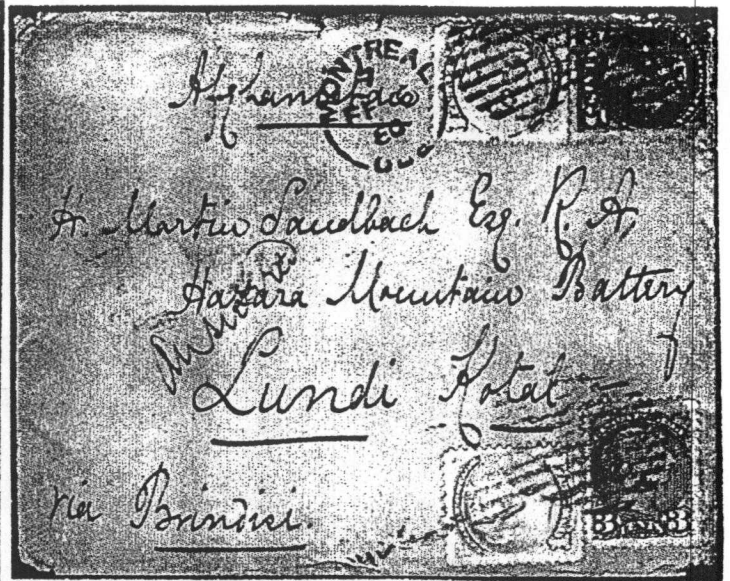 Afghanistan
MONTREAL
H. Martin Sandbach Esq. R. A.
Hazara Mountain Battery
Lundi Kotal
via Brindisi.
3 3